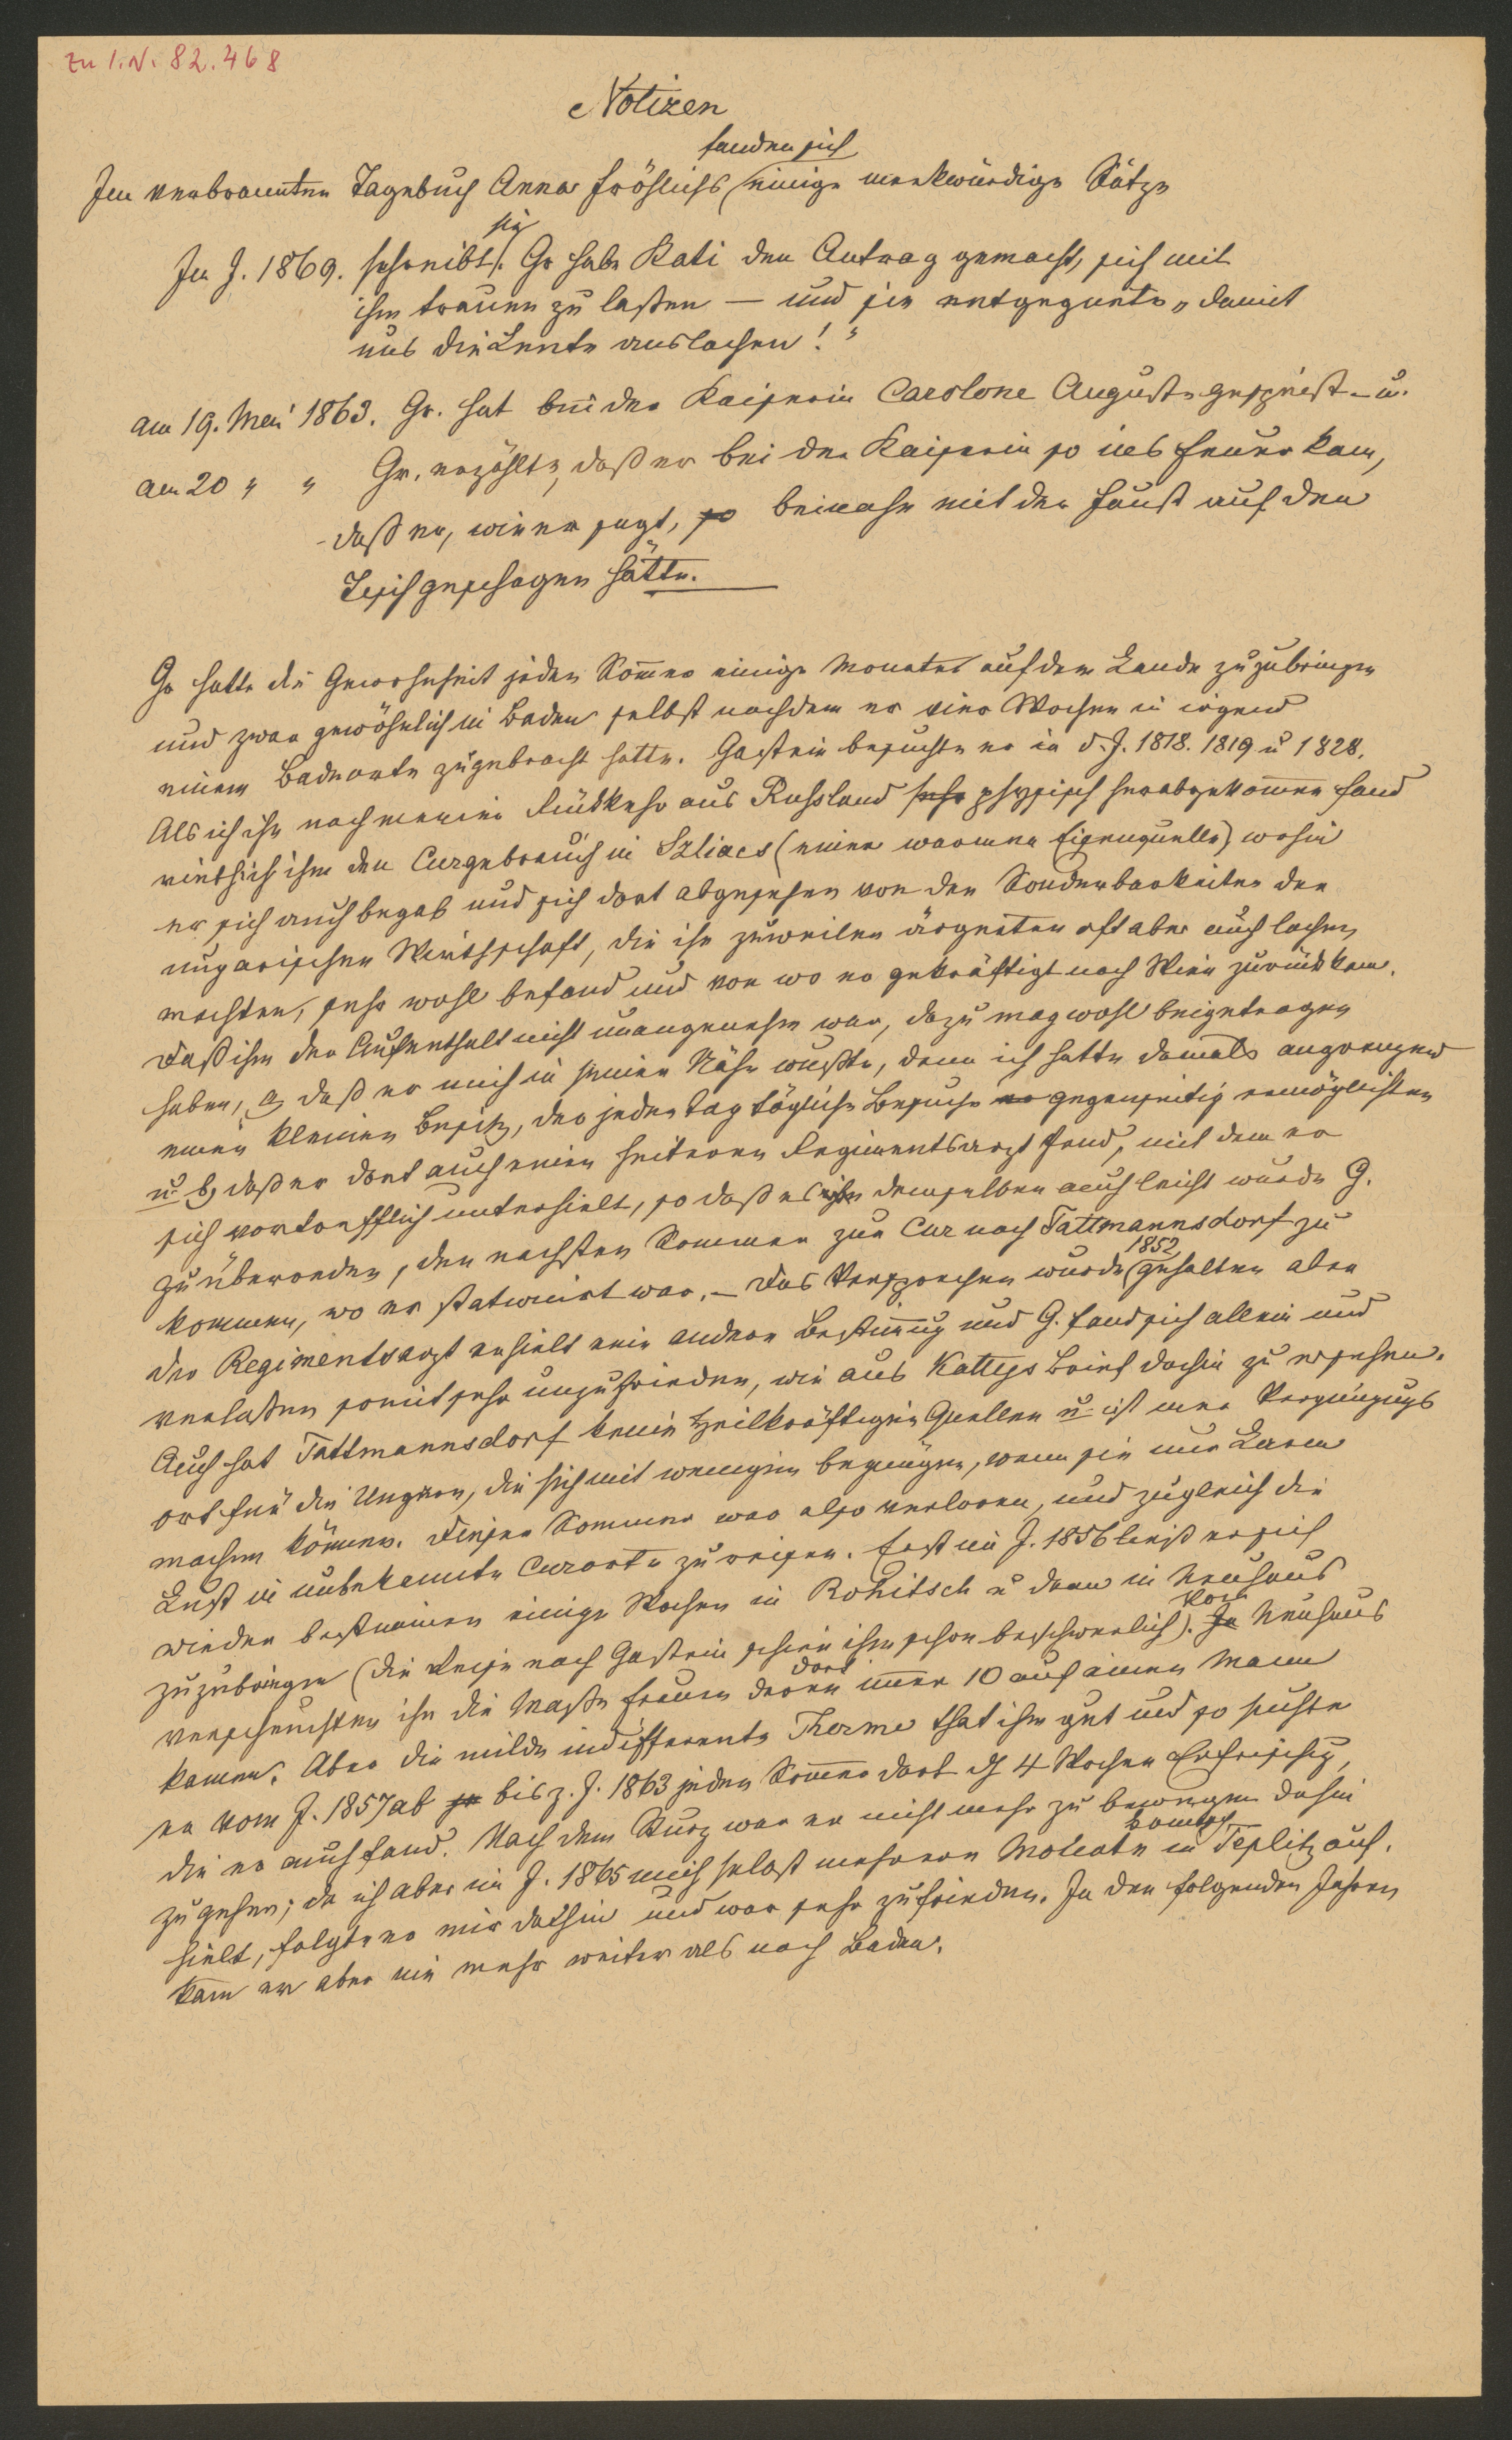 Zu I.N. 82.468
Notizen
fanden sich
Im verbrannten Tagebuch Anna Fröhlichs einige merkwürdige Sätze
sie
Im J. 1869. schreibt: Gr habe Kati den Antrag gemacht, sich mit
ihm trauen zu laßen — und sie entgegnete „damit
uns die Leute auslachen!"
am 19. Mai 1863. Gr. hat bei der Kaiserin Carolone Auguste gespeist. u.
am 20 " " Gr. erzählte, daß er bei der Kaiserin so ins Feuer kam,
daß er, wie er sagt, so beinahe mit der Faust auf den
Tisch geschagen hätte.
Gr hatte die Gewohnheit jeden Sommer einige Monate auf dem Lande zuzubringen
und zwar gewöhnlich in Baden selbst nachdem er vier Wochen in irgend
einem Badeorte zugebracht hatte. Gastein besuchte er in d. J. 1818. 1819 u 1828.
Als ich ihn nach meiner Rückkehr aus Russland sehr physisch herabgekommen fand
rieth ich ihm den Curgebrauch in Szliacs (einer warmen Eisenquelle) wohin
er sich auch begab und sich dort abgesehen von den Sonderbarkeiten der
ungarischen Wirthschaft, die ihn zuweilen ärgerten oft aber auch lachen
machten, sehr wohl befand und von wo er gekräftigt nach Wien zurückkam.
Daß ihm der Aufenthalt nicht unangenehm war, dazu mag wohl beigetragen
haben, a) daß er mich in seiner Nähe wußte, denn ich hatte damals angrenzend
einen kleinen Besitz, der jeden Tag tägliche Besuche gegenseitig ermöglichten
u b) daß er dort auch einen heiteren Regimentsarzt fand, mit dem er
sich vortrefflich unterhielt, so daß es demselben auch leicht wurde G.
zu überreden, den nachsten Sommer zur Cur nach Tattmannsdorf zu
1852
kommen, wo er stationirt war. — Das Versprechen wurde gehalten aber
der Regimentsarzt erhielt eine andere Bestimung und G. fand sich allein und
verlaßen somit sehr unzufrieden, wie aus Kattys Brief dahin zu ersehen.
Auch hat Tattmannsdorf keine heilkräftigen Quellen u ist nur Vergnügungs
ort für die Ungarn, die sich mit wenigem begnügen, wenn sie nur Lärm
machen können. Dieser Sommer war also verloren, und zugleich die
Lust in unbekannte Curorte zu reisen. Erst im J. 1856 ließ er sich
wieder bestimmen einige Wochen in Rohitsch u dann in Neuhaus
Von
zuzubringen (die Reise nach Gastein schien ihm schon beschwerlich). In Neuhaus
dort
verscheuchten ihn die Maße Frauen deren immer 10 auf einen Mann
kamen. Aber die milde indifferente Therme that ihm gut und so suchte
er vom J. 1857 ab bis z. J. 1863 jeden Sommer dort 4 Wochen Erfrischung,
die er auch fand. Nach dem Sturz war er nicht mehr zu bewegen dahin
zu gehen; da ich aber im J. 1865 mich selbst mehrere Monate in Teplitz auf-
hielt, folgte er mir dahin und war sehr zufrieden. In den folgenden Jahren
kam er aber nie mehr weiter als nach Baden.